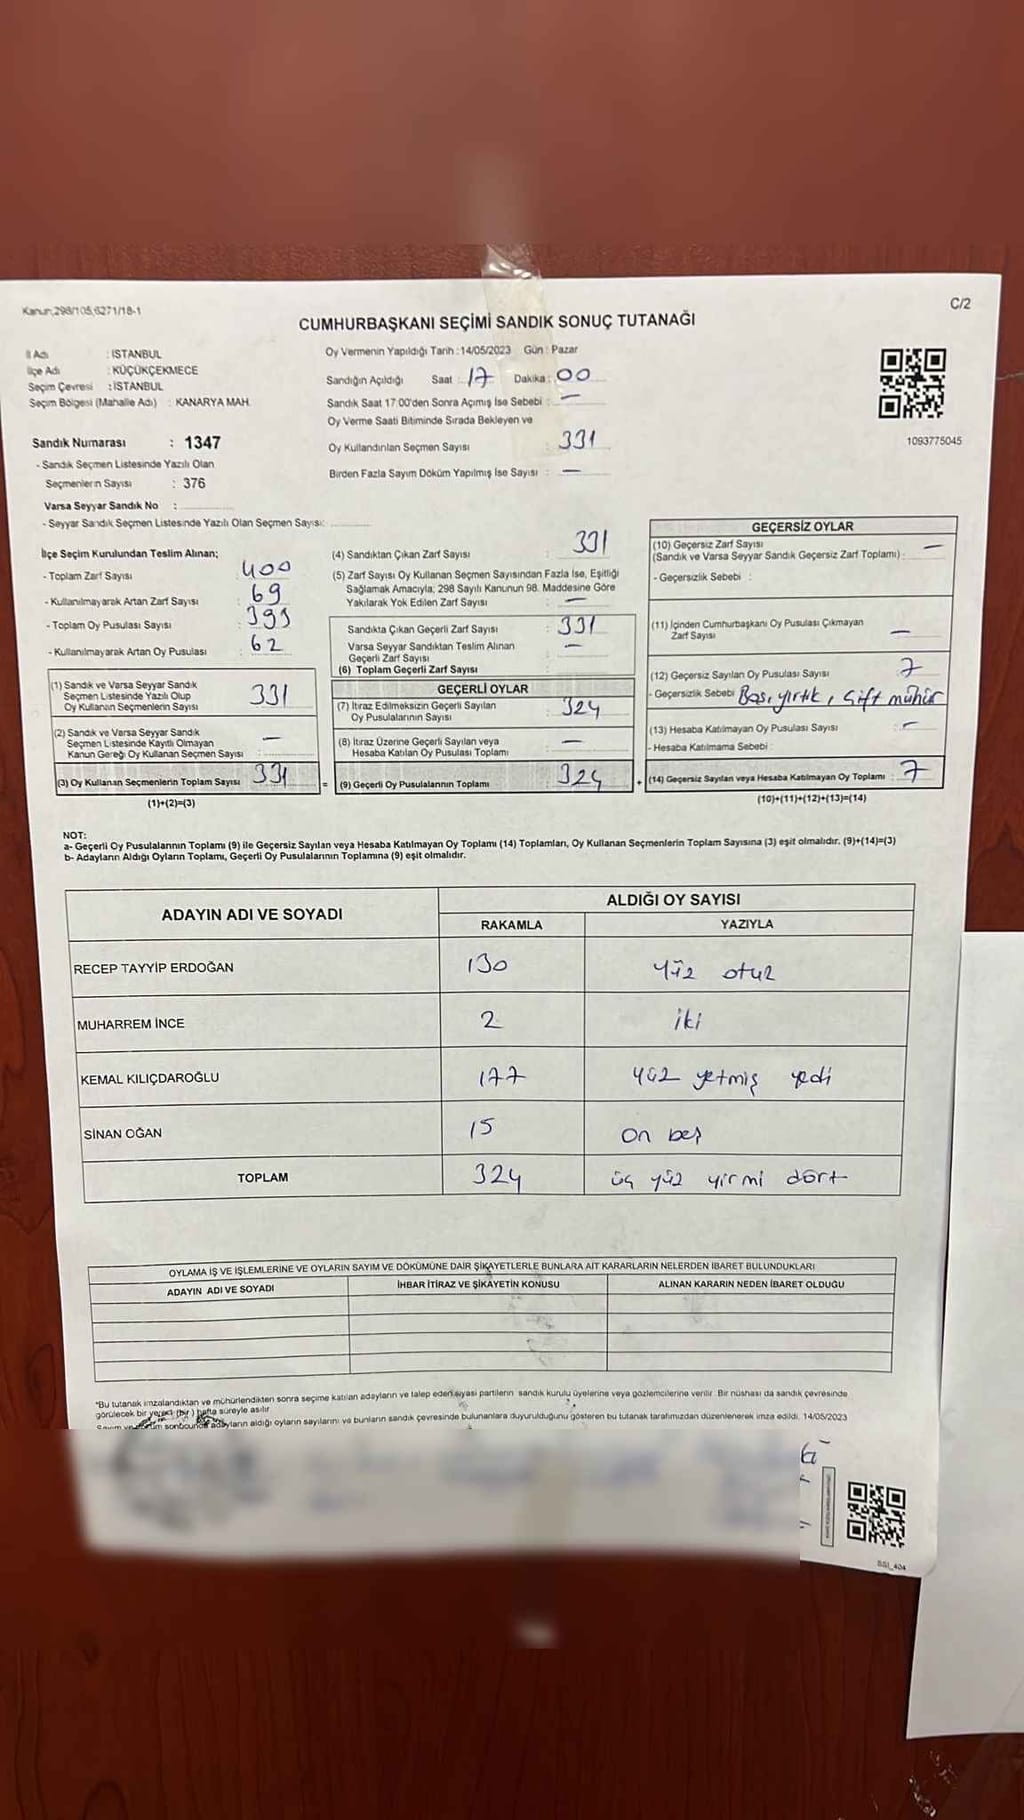 Kanun;298/105,6271/18-1
C/2
CUMHURBAŞKANI SEÇİMİ SANDIK SONUÇ TUTANAĞI
İl Adı : İSTANBUL
İlçe Adı : KÜÇÜKÇEKMECE
Seçim Çevresi : İSTANBUL
Seçim Bölgesi (Mahalle Adı) : KANARYA MAH.
Oy Vermenin Yapıldığı Tarih :14/05/2023 Gün : Pazar
Sandığın Açıldığı Saat : 17 Dakika : 00
Sandık Saat 17:00'den Sonra Açımış İse Sebebi : —
Oy Verme Saati Bitiminde Sırada Bekleyen ve
Oy Kullandırılan Seçmen Sayısı : 331
Birden Fazla Sayım Döküm Yapılmış İse Sayısı : —
1093775045
Sandık Numarası : 1347
- Sandık Seçmen Listesinde Yazılı Olan
Seçmenlerin Sayısı : 376
Varsa Seyyar Sandık No :
- Seyyar Sandık Seçmen Listesinde Yazılı Olan Seçmen Sayısı:
İlçe Seçim Kurulundan Teslim Alınan;
- Toplam Zarf Sayısı : 400
- Kullanılmayarak Artan Zarf Sayısı : 69
- Toplam Oy Pusulası Sayısı : 393
- Kullanılmayarak Artan Oy Pusulası : 62
(1) Sandık ve Varsa Seyyar Sandık
Seçmen Listesinde Yazılı Olup
Oy Kullanan Seçmenlerin Sayısı : 331
(2) Sandık ve Varsa Seyyar Sandık
Seçmen Listesinde Kayıtlı Olmayan
Kanun Gereği Oy Kullanan Seçmen Sayısı : —
(3) Oy Kullanan Seçmenlerin Toplam Sayısı : 331
(1)+(2)=(3)
(4) Sandıktan Çıkan Zarf Sayısı : 331
(5) Zarf Sayısı Oy Kullanan Seçmen Sayısından Fazla İse, Eşitliği
Sağlamak Amacıyla; 298 Sayılı Kanunun 98. Maddesine Göre
Yakılarak Yok Edilen Zarf Sayısı : —
Sandıkta Çıkan Geçerli Zarf Sayısı : 331
Varsa Seyyar Sandıktan Teslim Alınan
Geçerli Zarf Sayısı : —
(6) Toplam Geçerli Zarf Sayısı :
GEÇERLİ OYLAR
(7) İtiraz Edilmeksizin Geçerli Sayılan
Oy Pusulalarının Sayısı : 324
(8) İtiraz Üzerine Geçerli Sayılan veya
Hesaba Katılan Oy Pusulası Toplamı : —
= (9) Geçerli Oy Pusulalarının Toplamı : 324
GEÇERSİZ OYLAR
(10) Geçersiz Zarf Sayısı
(Sandık ve Varsa Seyyar Sandık Geçersiz Zarf Toplamı) : —
- Geçersizlik Sebebi :
(11) İçinden Cumhurbaşkanı Oy Pusulası Çıkmayan
Zarf Sayısı : —
(12) Geçersiz Sayılan Oy Pusulası Sayısı : 7
- Geçersizlik Sebebi : Boş, yırtık, Çift mühür
(13) Hesaba Katılmayan Oy Pusulası Sayısı : —
- Hesaba Katılmama Sebebi :
+ (14) Geçersiz Sayılan veya Hesaba Katılmayan Oy Toplamı : 7
(10)+(11)+(12)+(13)=(14)
NOT:
a- Geçerli Oy Pusulalarının Toplamı (9) ile Geçersiz Sayılan veya Hesaba Katılmayan Oy Toplamı (14) Toplamları, Oy Kullanan Seçmenlerin Toplam Sayısına (3) eşit olmalıdır. (9)+(14)=(3)
b- Adayların Aldığı Oyların Toplamı, Geçerli Oy Pusulalarının Toplamına (9) eşit olmalıdır.
ADAYIN ADI VE SOYADI ALDIĞI OY SAYISI
RAKAMLA YAZIYLA
RECEP TAYYİP ERDOĞAN 130 yüz otuz
MUHARREM İNCE 2 iki
KEMAL KILIÇDAROĞLU 177 yüz yetmiş yedi
SİNAN OĞAN 15 on beş
TOPLAM 324 üç yüz yirmi dört
OYLAMA İŞ VE İŞLEMLERİNE VE OYLARIN SAYIM VE DÖKÜMÜNE DAİR ŞİKAYETLERLE BUNLARA AİT KARARLARIN NELERDEN İBARET BULUNDUKLARI
ADAYIN ADI VE SOYADI İHBAR İTİRAZ VE ŞİKAYETİN KONUSU ALINAN KARARIN NEDEN İBARET OLDUĞU
*Bu tutanak imzalandıktan ve mühürlendikten sonra seçime katılan adayların ve talep eden siyasi partilerin sandık kurulu üyelerine veya gözlemcilerine verilir. Bir nüshası da sandık çevresinde
görülecek bir yere ( bir ) hafta süreyle asılır.
adayların aldığı oyların sayılarını ve bunların sandık çevresinde bulunanlara duyurulduğunu gösteren bu tutanak tarafımızdan düzenlenerek imza edildi. 14/05/2023
SSI_404